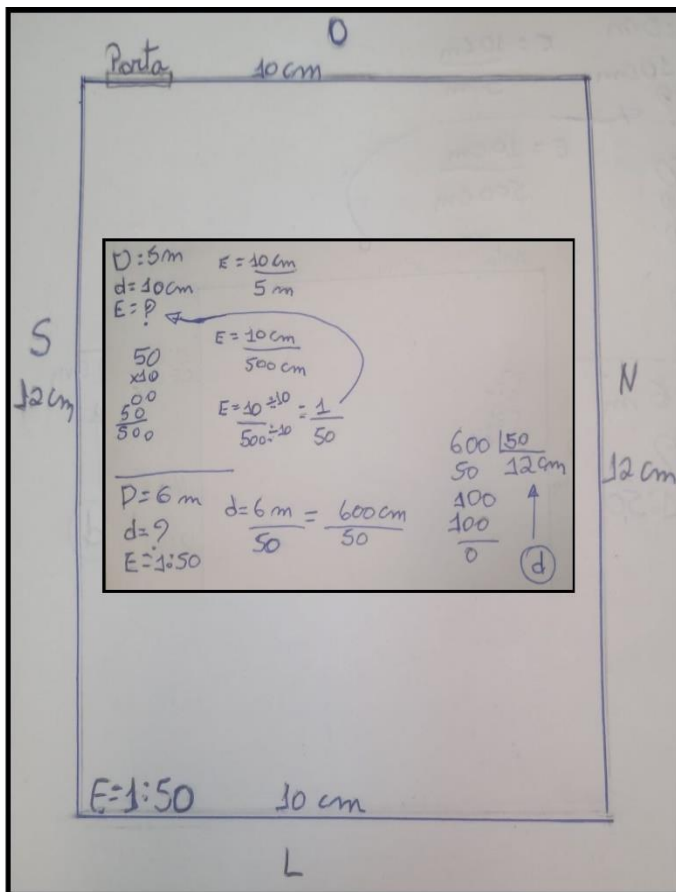 O
Porta
10cm
S
12cm
N
12cm
D=5m
d=10cm
E=?
E=10cm
5m
E=10cm
500cm
50
x10
00
50
500
E=10÷10=1
500÷10 50
D=6m
d=?
E=1:50
d=6m=600cm
50 50
600 50
50 12cm
100
100
0
d
E=1:50
10 cm
L